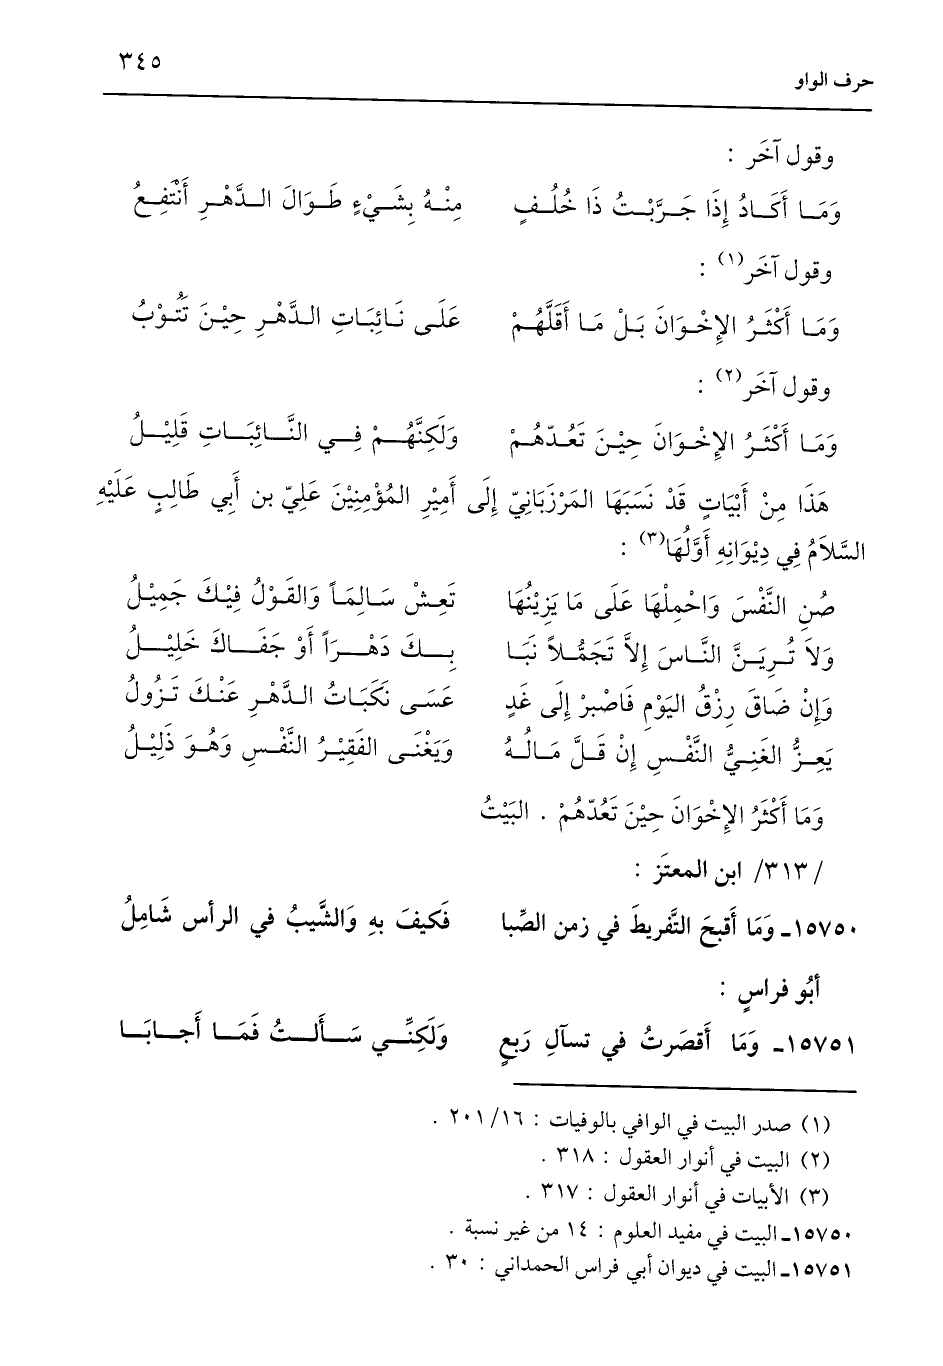 حرف الواو ٣٤٥
وقول آخَر :
وَمَـا أَكَـادُ إِذَا جَـرَّبْـتُ ذَا خُلُـفٍ مِنْـهُ بِشَـيْءٍ طَـوَالَ الـدَّهْـرِ أَنْتَفِـعُ
وقول آخَر(١) :
وَمَـا أَكْثَـرُ الإِخْـوَانَ بَـلْ مَـا أَقَلَّهُـمْ عَلَـى نَـائِبَـاتِ الـدَّهْـرِ حِيْـنَ تَنُـوْبُ
وقول آخَر(٢) :
وَمَـا أَكْثَـرُ الإِخْـوَانَ حِيْـنَ تَعُـدّهُـمْ وَلَكِنَّهُـمْ فِـي النَّـائِبَـاتِ قَلِيْـلُ
هَذَا مِنْ أَبْيَاتٍ قَدْ نَسَبَهَا المَرْزَبَانِيّ إِلَى أَمِيْرِ المُؤْمِنِيْنَ عَلِيّ بن أَبِي طَالِبٍ عَلَيْهِ
السَّلاَمُ فِي دِيْوَانِهِ أَوَّلُهَا(٣) :
صُنِ النَّفْسَ وَاحْمِلْهَا عَلَى مَا يَزِيْنُهَا تَعِـشْ سَـالِمَـاً وَالقَـوْلُ فِيْـكَ جَمِيْـلُ
وَلاَ تُـرِيَـنَّ النَّـاسَ إِلاَّ تَجَمُّـلاً نَبَـا بِـكَ دَهْـرَاً أَوْ جَفَـاكَ خَلِيْـلُ
وَإِنْ ضَاقَ رِزْقُ اليَوْمِ فَاصْبِرْ إِلَى غَدٍ عَسَـى نَكَبَـاتُ الـدَّهْـرِ عَنْـكَ تَـزُولُ
يَعِـزُّ الغَنِـيُّ النَّفْـسِ إِنْ قَـلَّ مَـالُـهُ وَيَغْنَـى الفَقِيْـرُ النَّفْـسِ وَهُـوَ ذَلِيْـلُ
وَمَا أَكْثَرُ الإِخْوَانَ حِيْنَ تَعُدّهُمْ . البَيْتُ
/٣١٣/ ابن المعتَز :
١٥٧٥٠ـ وَمَا أَقبَحَ التَّفريطَ في زمن الصِّبا فَكيفَ بهِ وَالشَّيبُ في الرأس شَامِلُ
أبُو فراسٍ :
١٥٧٥١ـ وَمَا أَقصَرتُ في تسآلِ رَبعٍ وَلَكِنِّـي سَـأَلـتُ فَمَـا أَجـابَـا
(١) صدر البيت في الوافي بالوفيات : ٢٠١/١٦ .
(٢) البيت في أنوار العقول : ٣١٨ .
(٣) الأبيات في أنوار العقول : ٣١٧ .
١٥٧٥٠ـ البيت في مفيد العلوم : ١٤ من غير نسبة .
١٥٧٥١ـ البيت في ديوان أبي فراس الحمداني : ٣٠ .